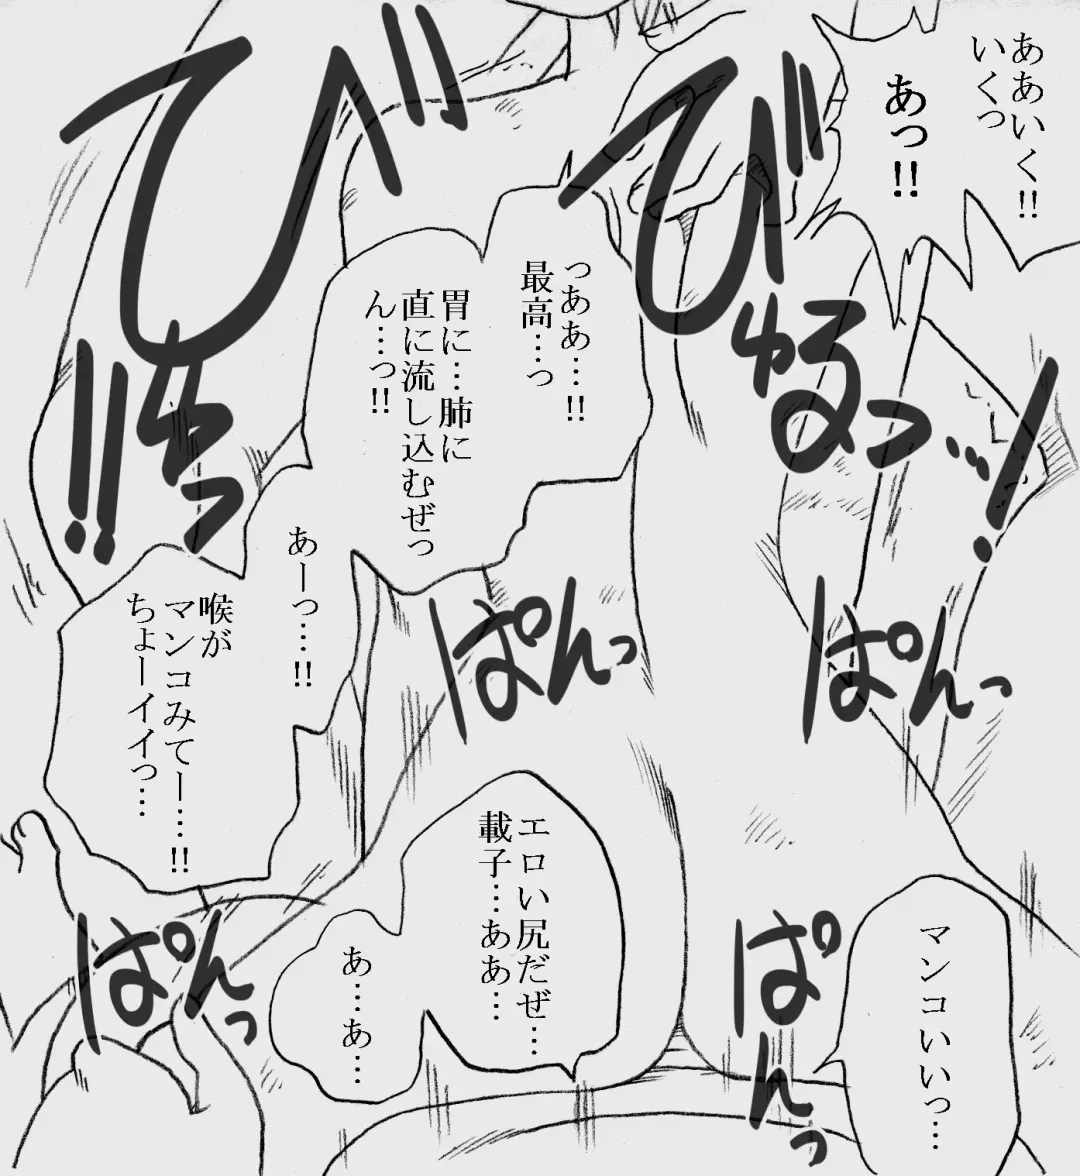 ああいく!!
いくっ
あっ!!
びゅるっ…!
っああ…!!
最高…っ
胃に…肺に
直に流し込むぜっ
ん…っ!!
びちっ!!
あーっ…!!
喉が
マンコみてー…!!
ちょーイイっ…
ぱんっ
ぱんっ
マンコいいっ…
ぱんっ
エロい尻だぜ…
載子…ああ…
あ…あ…
ぱんっ